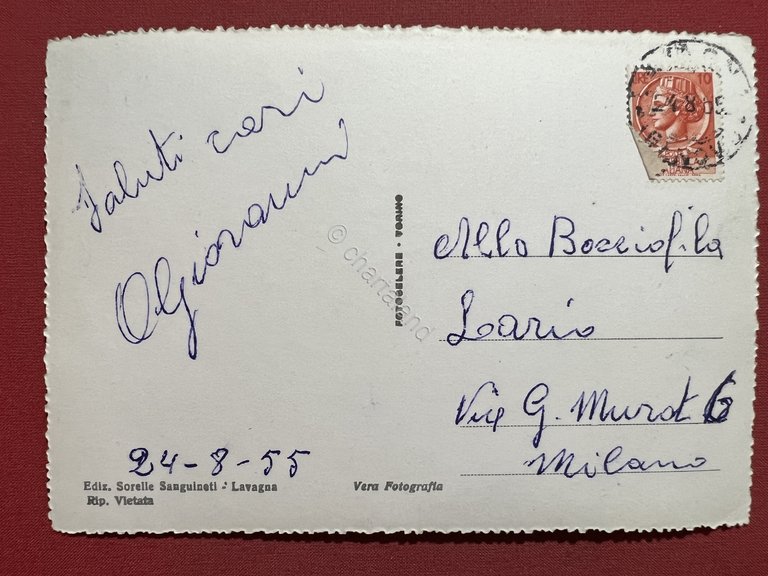 Saluti cari
24-8-55
Ediz. Sorelle Sanguineti - Lavagna
Rip. Vietata
Vera Fotografia
FOTOCELERE - TORINO
© chartaland
10
24.8.55
Allo Bocciofila
Lario
Via G. Murat 6
Milano